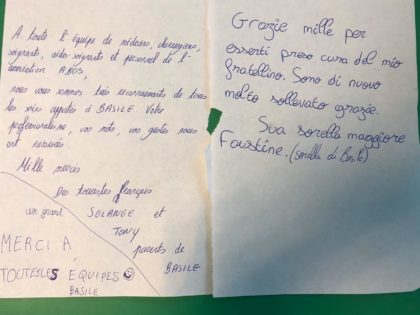 A toute l'équipe de médecins, chirurgiens,
soignants, aide-soignants et personnel de l'
association ABOS,
nous vous sommes très reconnaissants de tous
les soins apportés à BASILE. Votre
professionnalisme, vos mots, vos gestes nous
ont rassurés
Mille mercis
Des touristes français
un grand SOLANGE et
TONY
parents de
BASILE
MERCI À
TOUTES LES EQUIPES
BASILE
Grazie mille per
esserti preso cura del mio
fratellino. Sono di nuovo
molto sollevato grazie.
Sua sorella maggiore
Faustine. (sorella di Basile)